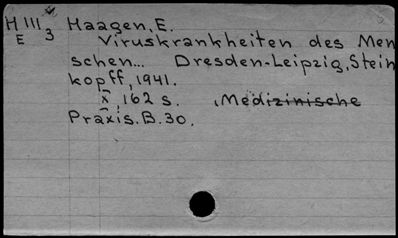 H III 3 Haagen, E.
E
Viruskrankheiten des Men
schen... Dresden-Leipzig, Stein
kopff, 1941.
X, 162 s. Medizinische
Praxis. B. 30.